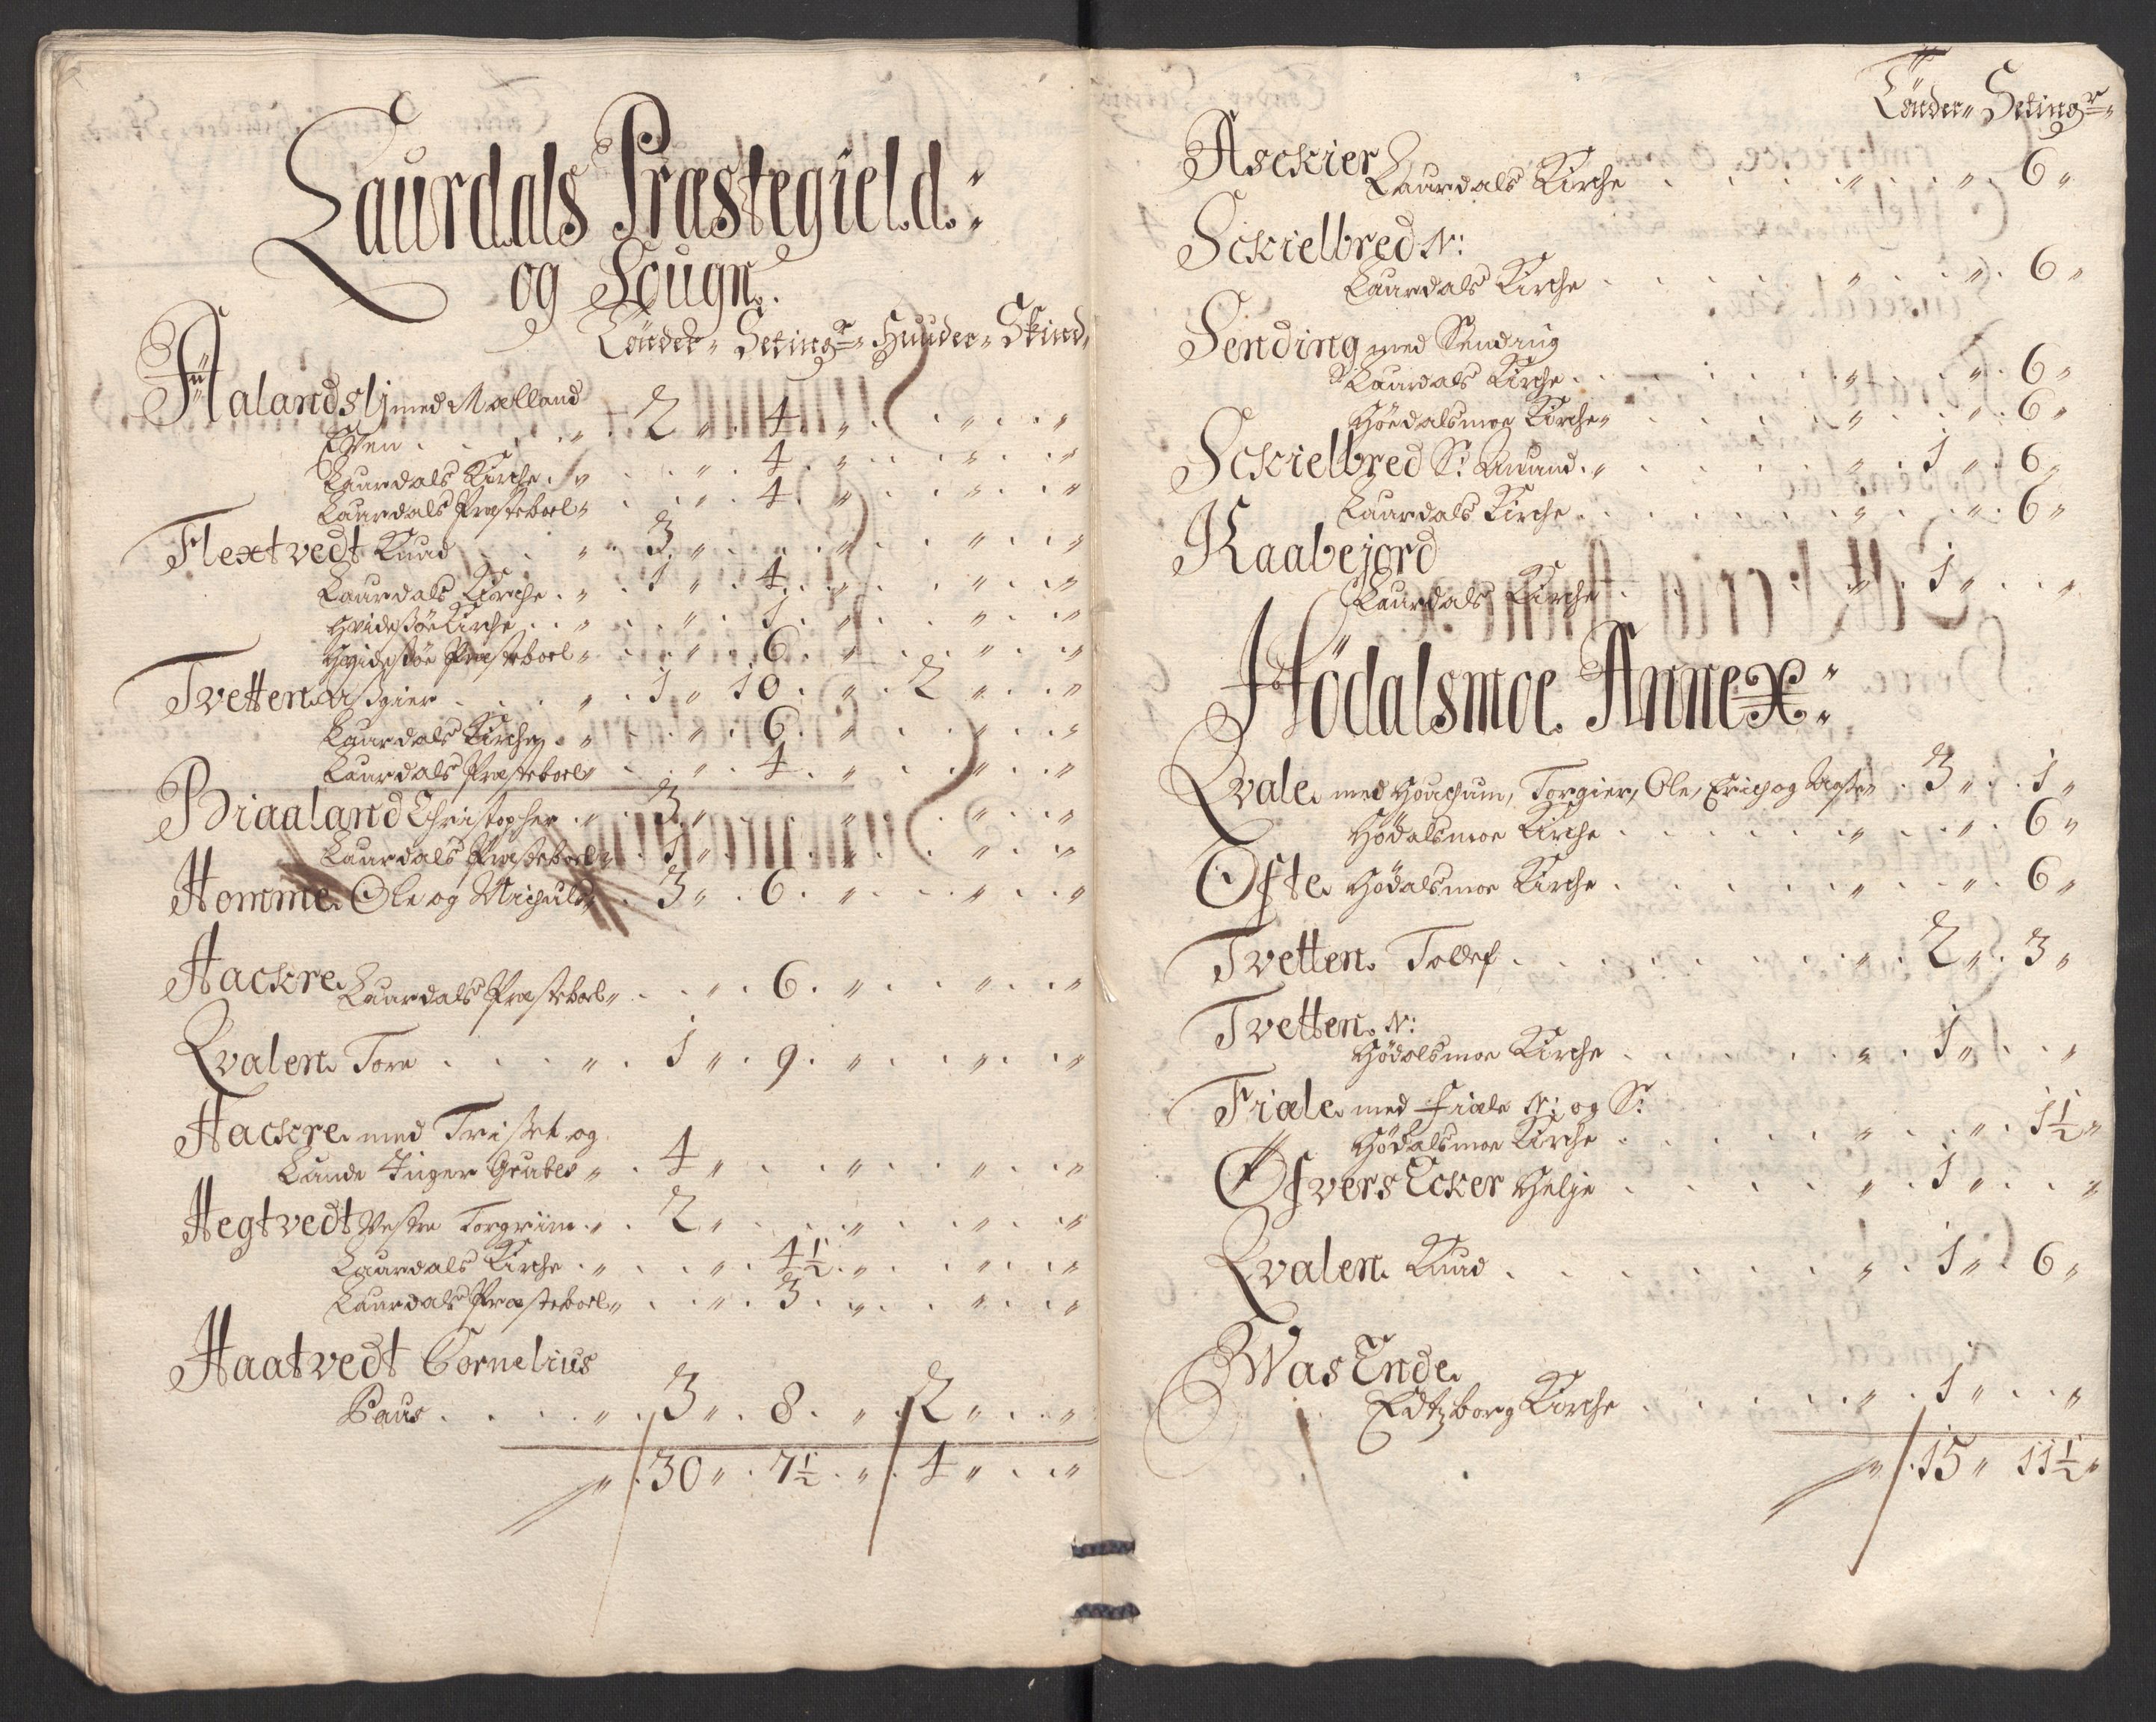 Laurdals Præstegield:
og Sougn.
Tönder Setingr Huuder Skind
Aalandslj med Malland
Eyen . . . . 2 . 4 .
Laurdals Kirche . . . 4 .
Laurdals Præsteboel . . 4
Flextvedt Knud . . 3 . .
Laurdals Kirche . 1 . 4 .
Hvideßöe Kirche . . . 1 .
Hvideßöe Præsteboel . . 6 .
Tvetten Aßgier . . . 1 10 . 2 . .
Laurdals Kirche . . . 6 .
Laurdals Præsteboel . . 4 .
Biaaland Christopher . 3 . .
Laurdals Præsteboel . 1 . .
Homme Ole og Michuld . 3 . 6 .
Hackre Laurdals Præsteboel . . 6 .
Qvalen Tore . . . 1 . 9 .
Hackre med Trißet og
Lunde Inger Grubes . 4 . .
Hegtvedt Vestre Torgrim . 2 . .
Laurdals Kirche . . . 4½ .
Laurdals Præsteboel . . 3 .
Haatvedt Cornelius
Paus . . . . 3 . 8 . 2 . .
30 . 7½ . 4 . .
Tönder Setingr
Asckier
Laurdals Kirche . . . . 6
Sckielbred N:
Laurdals Kirche . . . . 6
Sending med Sending
Laurdals Kirche . . . . 6
Hödalsmoe Kirche . . . . 6
Sckielbred S: Anund . . . 1 . 6
Laurdals Kirche . . . . 6
Kaabejord
Laurdals Kirche . . . 1 . .
Hödalsmoe Annex:
Qvale med Torgier, Ole, Erich og . 3 . 1
Hödalsmoe Kirche . . . . 6
Ofte Hödalsmoe Kirche . . . . 6
Tvetten Tollef . . . . 2 . 3
Tvetten N:
Hödalsmoe Kirche . . . 1 . .
Fiale med Fiale N: og S:
Hödalsmoe Kirche . . . . 1½
Öfvers Ecker Helje . . . 1 . .
Qvalen Knud . . . . 1 . 6
Was Ende
Edtzborg Kirche . . . 1 . .
15 11½